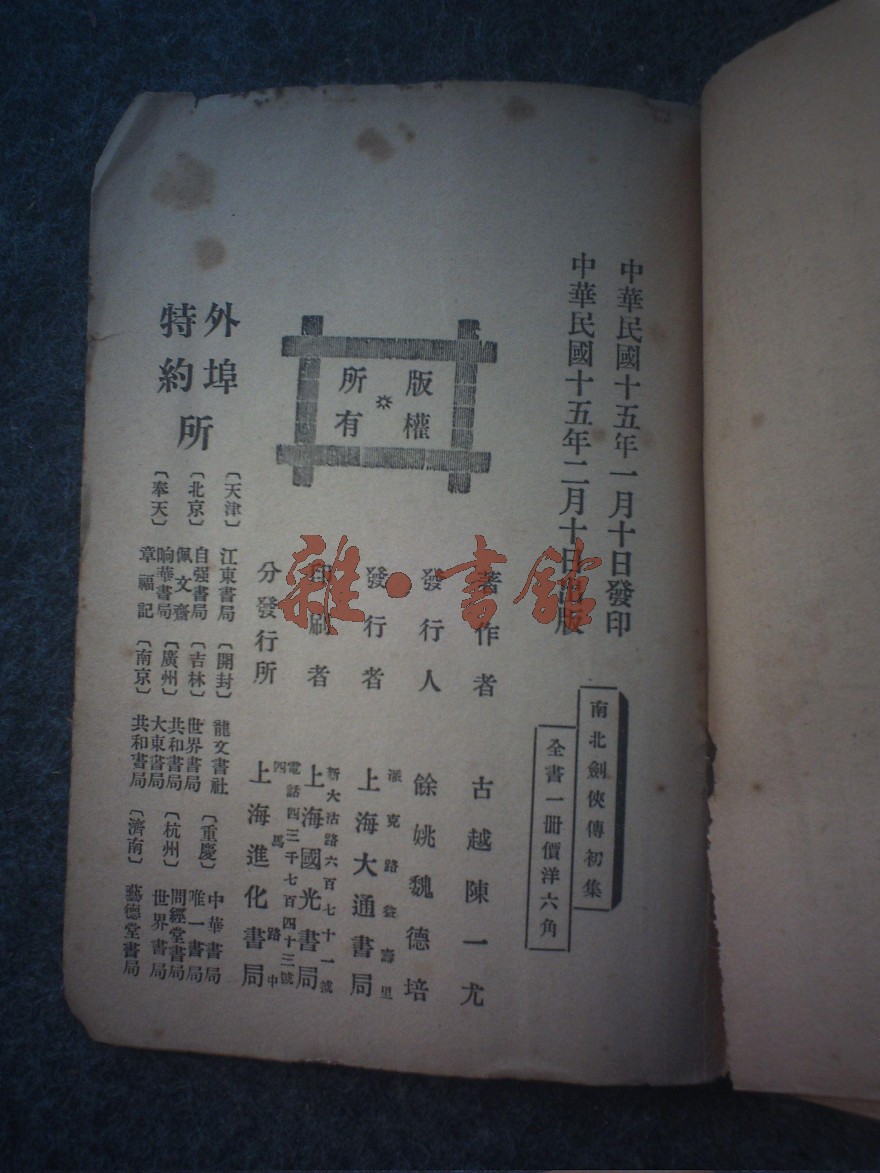 中華民國十五年一月十日發印
中華民國十五年二月十日出版
南北劍俠傳初集
全書一冊價洋六角
版權
所有
著作者 古越陳一尤
發行人 餘姚魏德培
發行者 派克路益壽里 上海大通書局
印刷者 新大沽路六百七十一號 上海國光書局 電話四三千七百四十三號
分發行所 四馬路中 上海進化書局
外埠
特約
所
〔天津〕 江東書局 〔開封〕 龍文書社 〔重慶〕 中華書局
〔北京〕 自强書局 〔吉林〕 世界書局 唯一書局
佩文齋 〔廣州〕 共和書局 〔杭州〕 問經堂書局
〔奉天〕 晌華書局 大東書局 世界書局
章福記 〔南京〕 共和書局 〔濟南〕 藝德堂書局
雜·書館